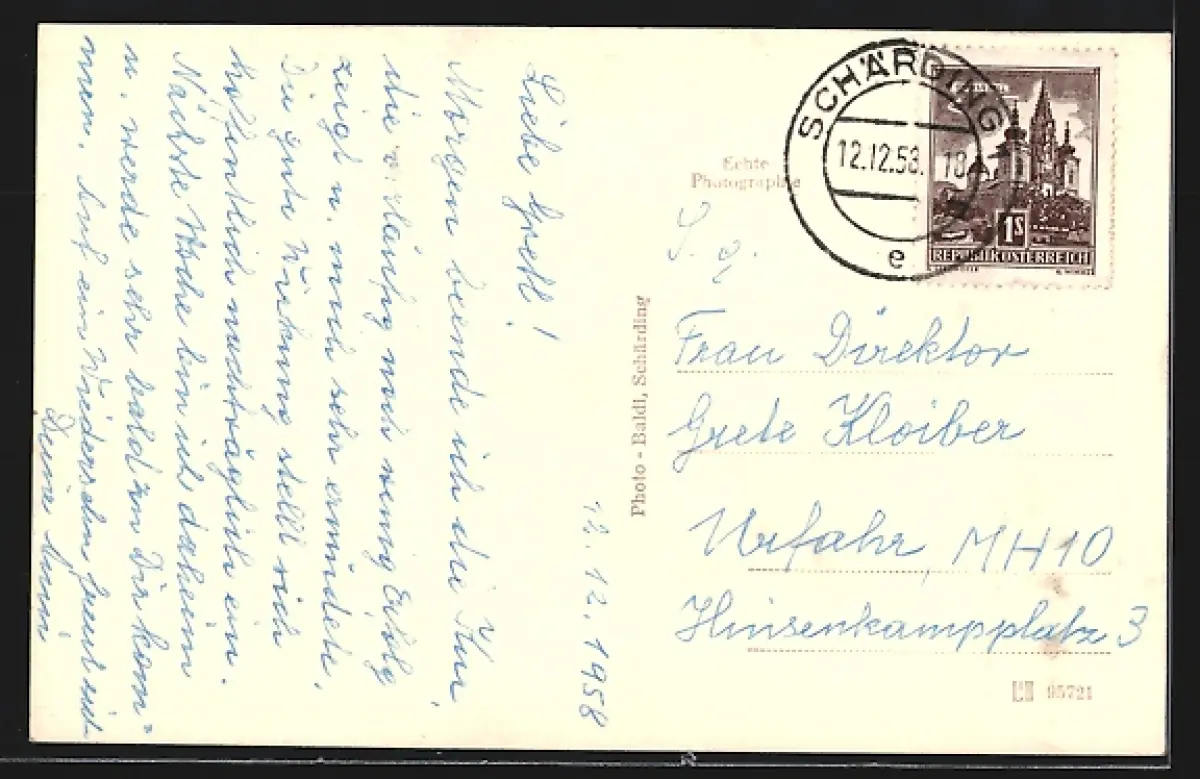 12.12.1958
Liebe Gretl!
Morgen beende ich die Kur,
die häufig noch wenig Erfolg
zeigt u. mich sehr ermüdete.
Die gute Wirkung stellt sich
hoffentlich nachträglich ein.
Nächste Woche bin ich daheim
u. werde sehr bald zu Dir kom-
men. Auf ein Wiedersehn freut sich
Deine
Echte
Photographie
Photo - Baldi, Schärding
SCHÄRDING
12.12.58. 18
e
1S
REPUBLIK ÖSTERREICH
S. g.
Frau Direktor
Grete Kloiber
Urfahr, MH10
Hinsenkampplatz 3
95721